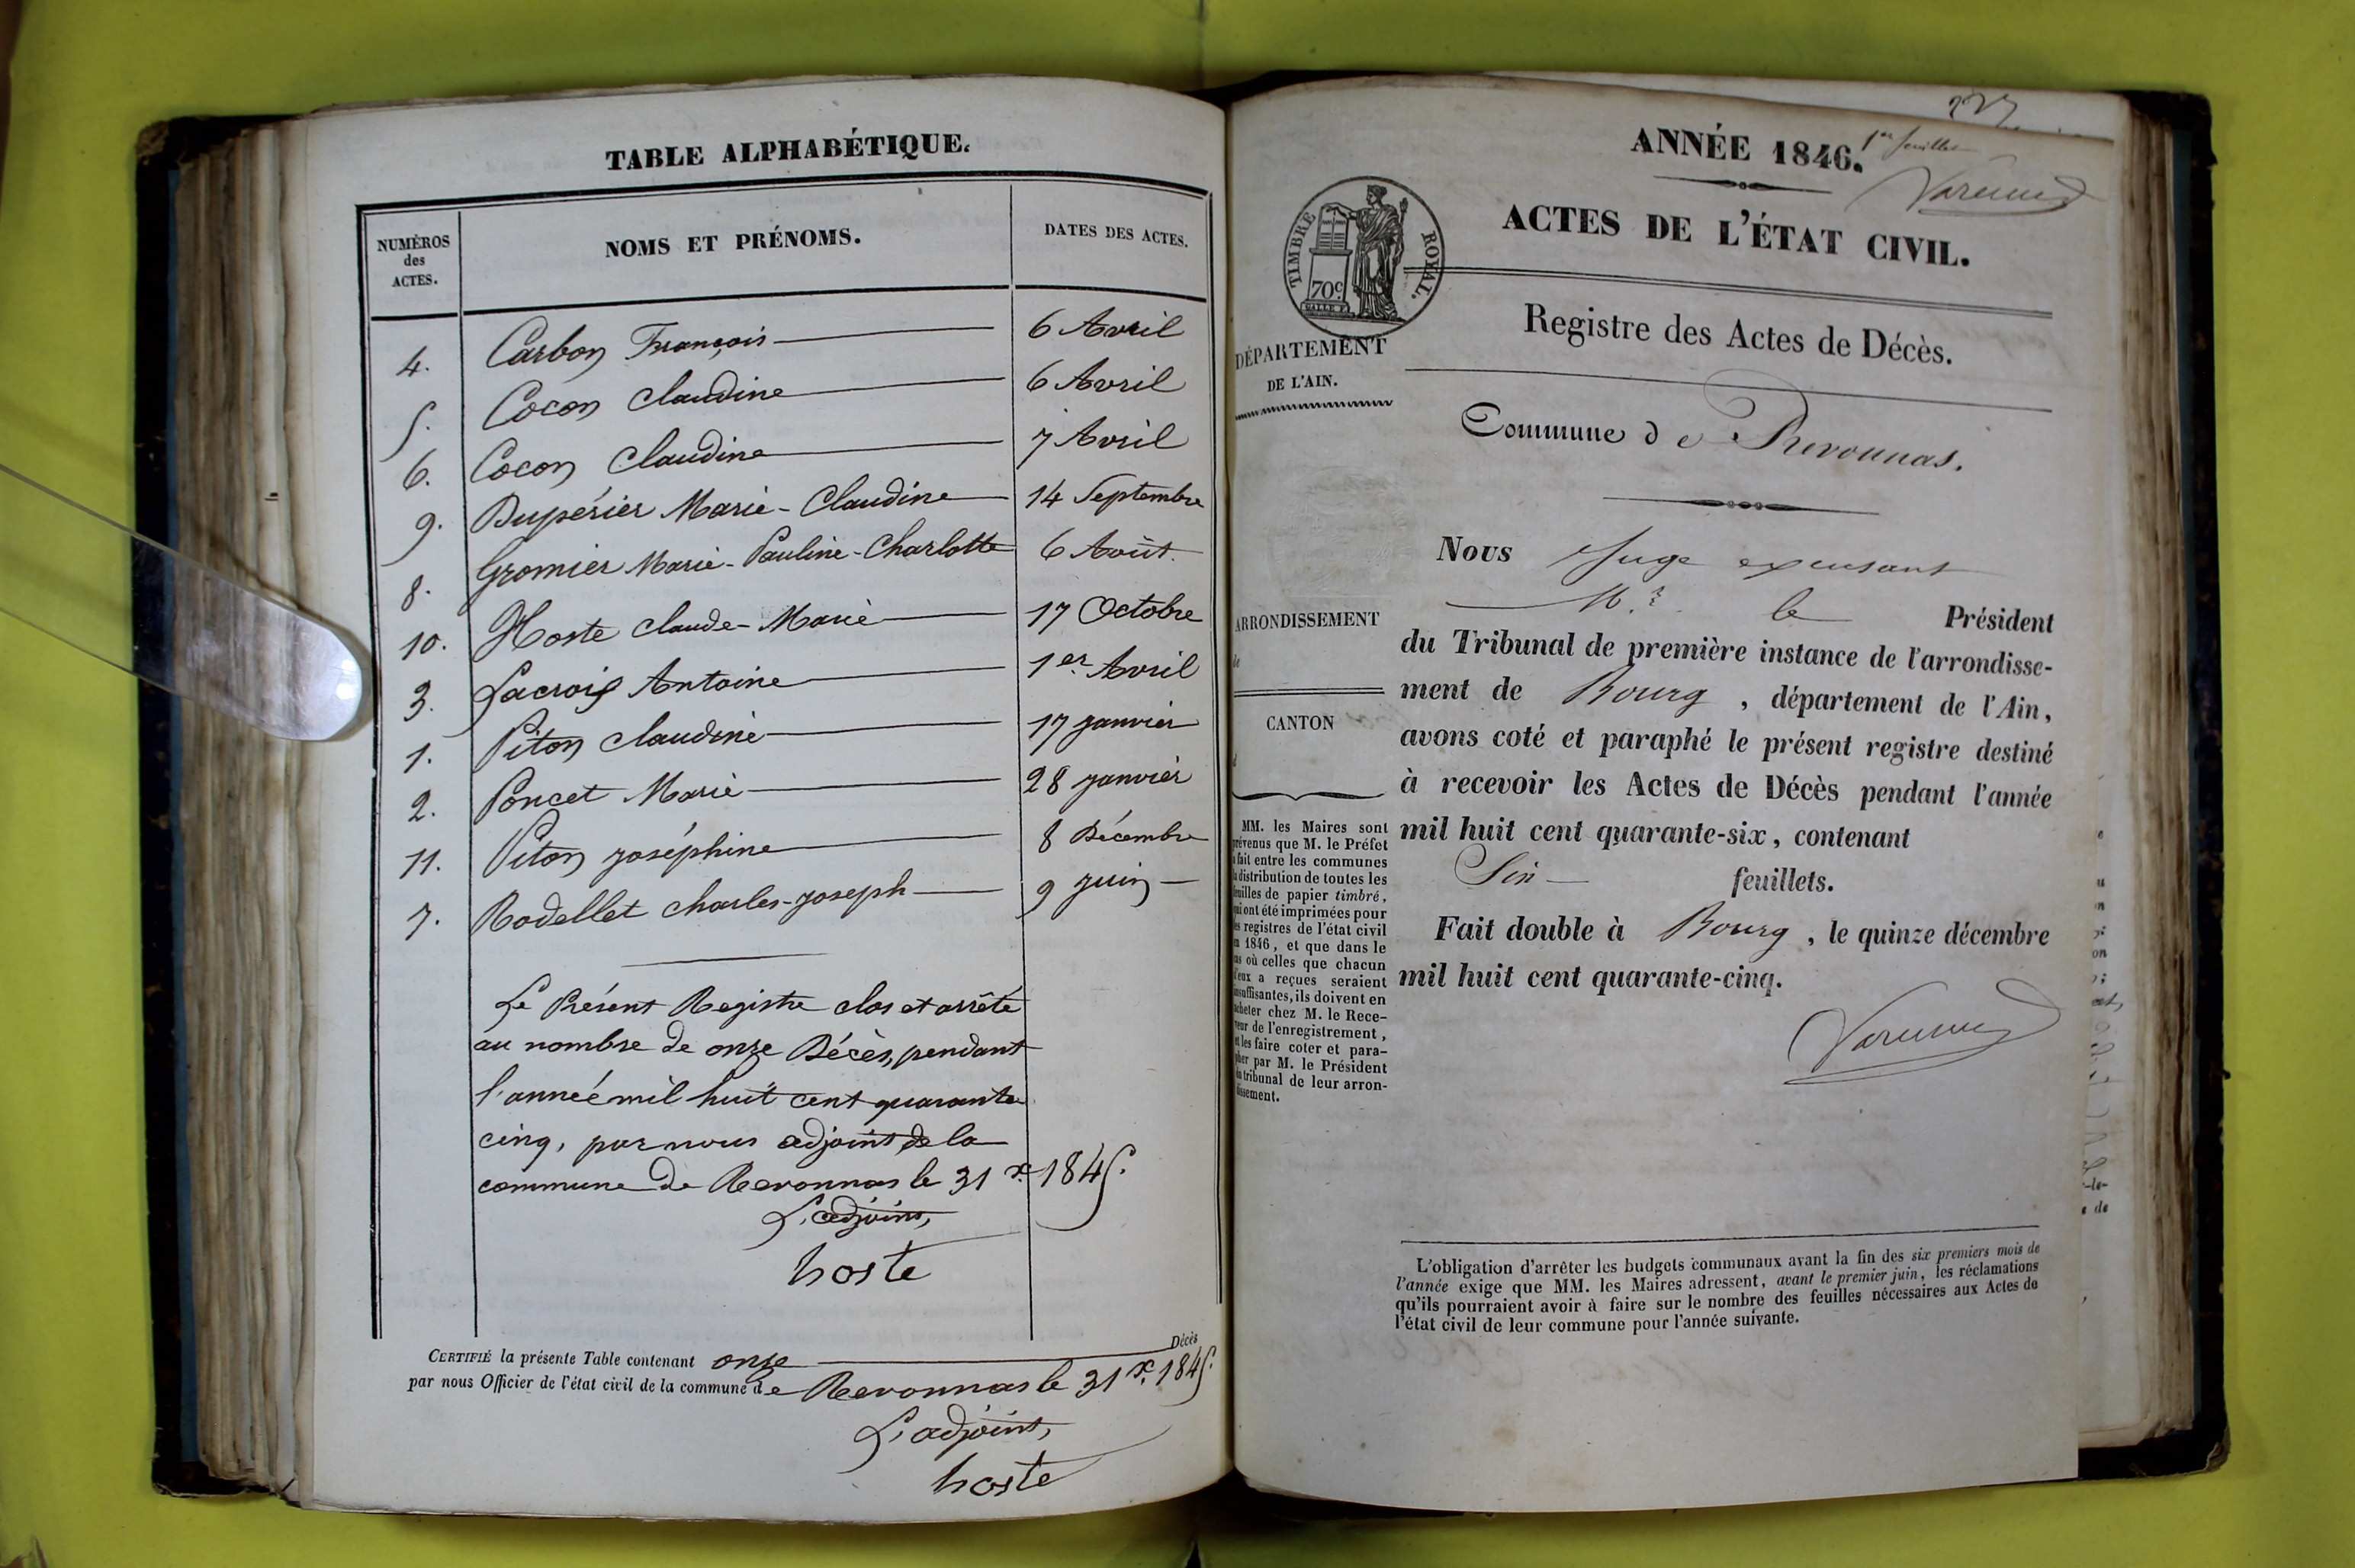 TABLE ALPHABÉTIQUE.
NUMÉROS des ACTES. NOMS ET PRÉNOMS. DATES DES ACTES.
4. Carbon François 6 Avril
5. Cocon Claudine 6 Avril
6. Cocon Claudine 7 Avril
9. Dupérier Marie-Claudine 14 Septembre
8. Gromier Marie-Pauline-Charlotte 6 Août.
10. Hoste Claude-Marie 17 Octobre
3. Lacroix Antoine 1er Avril
1. Piton Claudine 17 janvier
2. Poncet Marie 28 janvier
11. Piton joséphine 8 Décembre
7. Rodellet charles-joseph 9 juin
Le Présent Registre clos et arrêté
au nombre de onze Décès, pendant
l'année mil huit cent quarante
cinq, par nous adjoint de la
commune de Revonnas le 31 X.e 1845.
L'adjoint,
hoste
Décès
CERTIFIÉ la présente Table contenant onze
par nous Officier de l'état civil de la commune de Revonnas le 31 X.e 1845.
L'adjoint,
hoste
ANNÉE 1846.
1er feuillet
ACTES DE L'ÉTAT CIVIL.
TIMBRE ROYAL.
70c
Registre des Actes de Décès.
DÉPARTEMENT
DE L'AIN.
Commune de Revonnas.
ARRONDISSEMENT
de
CANTON
d
MM. les Maires sont
prévenus que M. le Préfet
a fait entre les communes
la distribution de toutes les
feuilles de papier timbré,
qui ont été imprimées pour
les registres de l'état civil
en 1846, et que dans le
cas où celles que chacun
d'eux a reçues seraient
insuffisantes, ils doivent en
acheter chez M. le Rece-
veur de l'enregistrement,
et les faire coter et para-
pher par M. le Président
du tribunal de leur arron-
dissement.
Nous Juge
Mr. le Président
du Tribunal de première instance de l'arrondisse-
ment de Bourg, département de l'Ain,
avons coté et paraphé le présent registre destiné
à recevoir les Actes de Décès pendant l'année
mil huit cent quarante-six, contenant
Six feuillets.
Fait double à Bourg, le quinze décembre
mil huit cent quarante-cinq.
L'obligation d'arrêter les budgets communaux avant la fin des six premiers mois de
l'année exige que MM. les Maires adressent, avant le premier juin, les réclamations
qu'ils pourraient avoir à faire sur le nombre des feuilles nécessaires aux Actes de
l'état civil de leur commune pour l'année suivante.